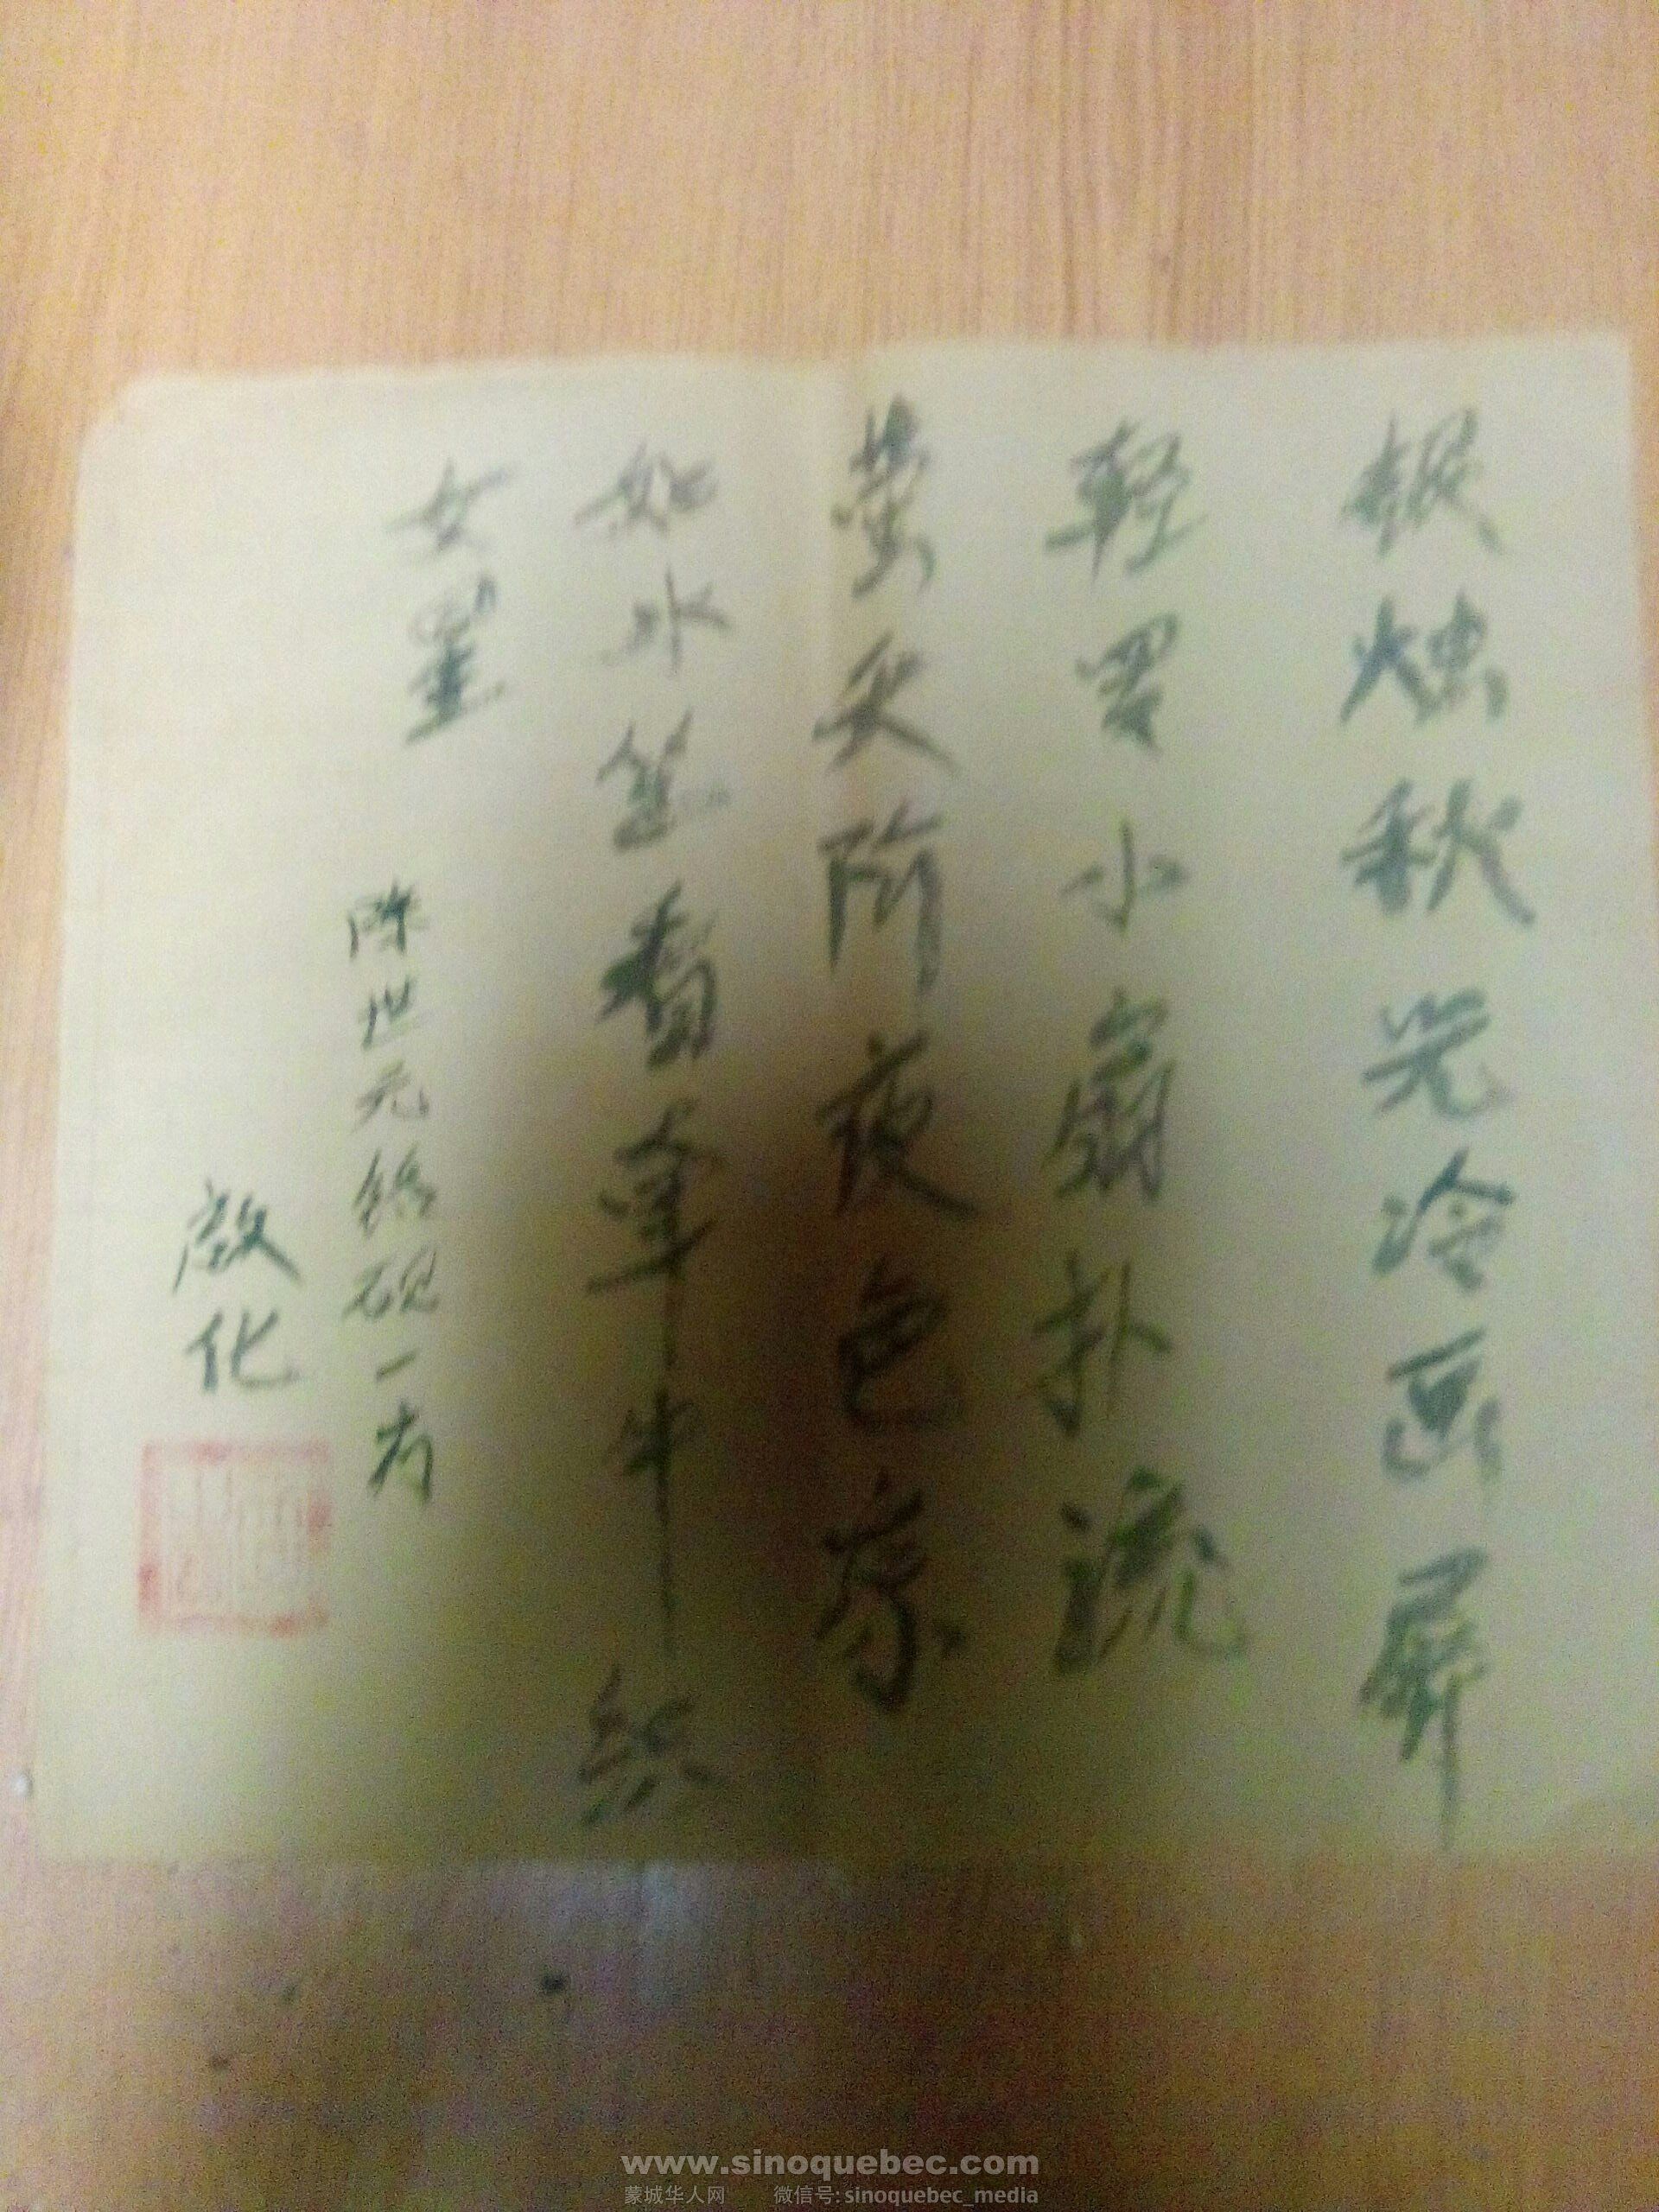 银烛秋光冷画屏
輕罗小扇扑流
萤天阶夜色凉
如水坐看牵牛织
女星
陈世元砚一
化
www.sinoquebec.com
蒙城华人网 微信号: sinoquebec_media